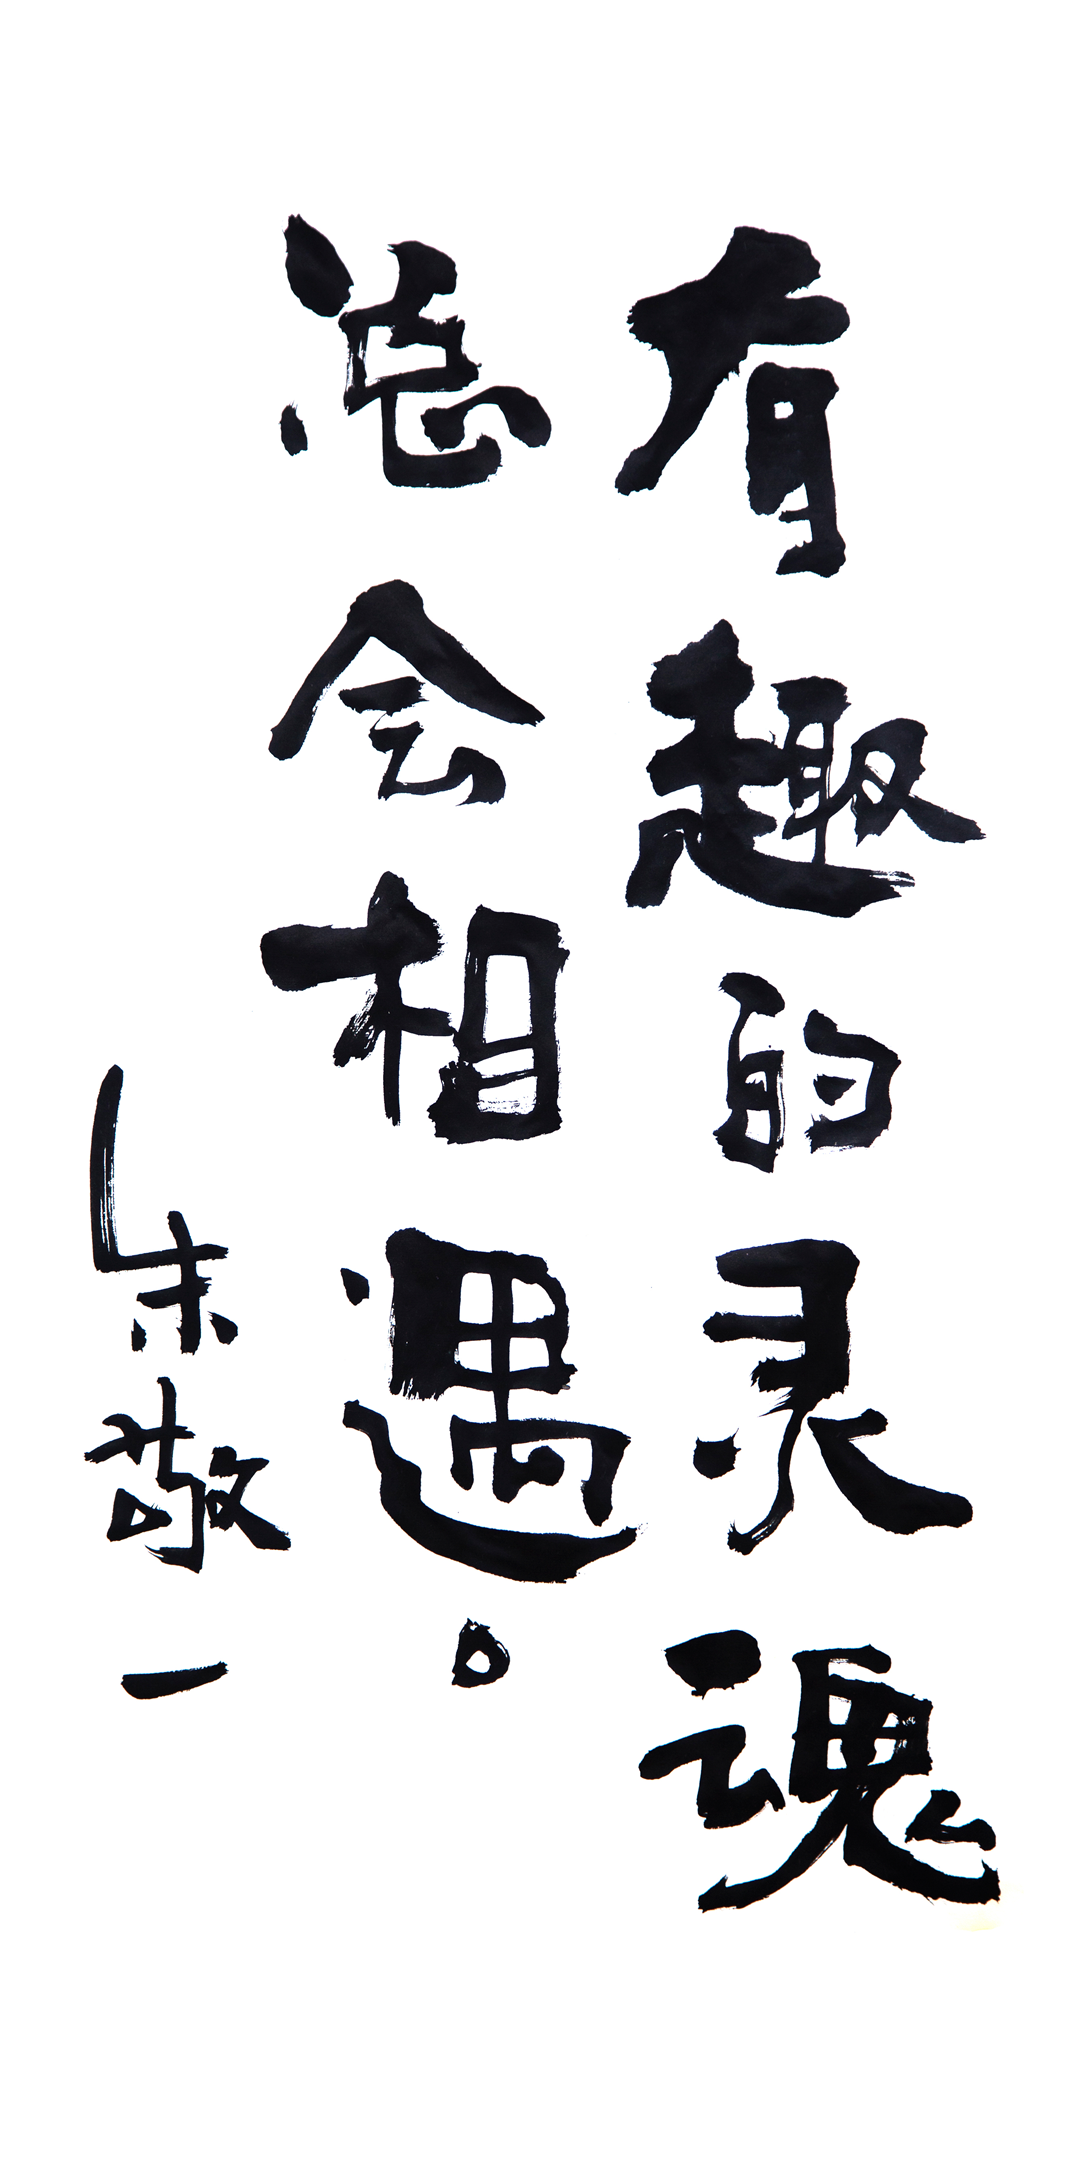 有趣的灵魂
总会相遇。
朱敬一